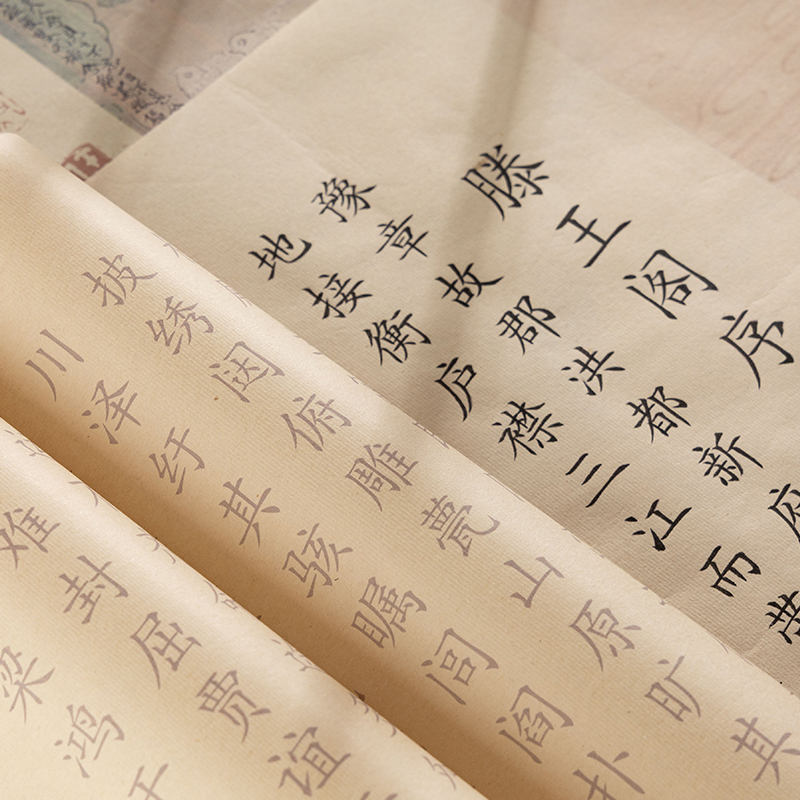 滕王阁序
豫章故郡洪都新府
地接衡庐襟三江而带
披绣闼俯雕甍山原旷其
川泽纡其骇瞩闾阎扑
难封屈贾谊
梁鸿于